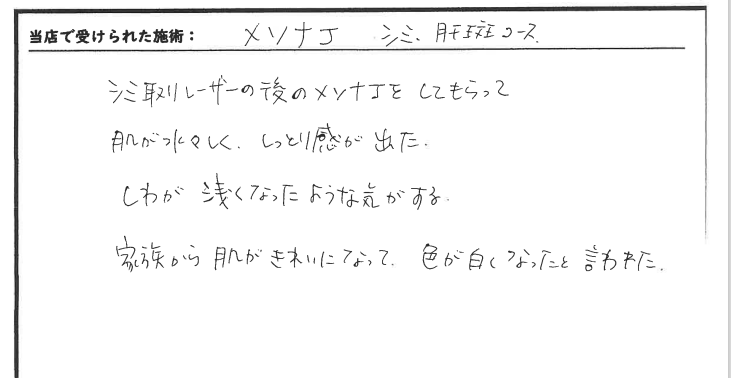 当店で受けられた施術： メソナJ シミ、肝斑コース
シミ取りレーザーの後のメソナJをしてもらって
肌が水々しく、しっとり感が出た。
しわが浅くなったような気がする。
家族から肌がきれいになって、色が白くなったと言われた。